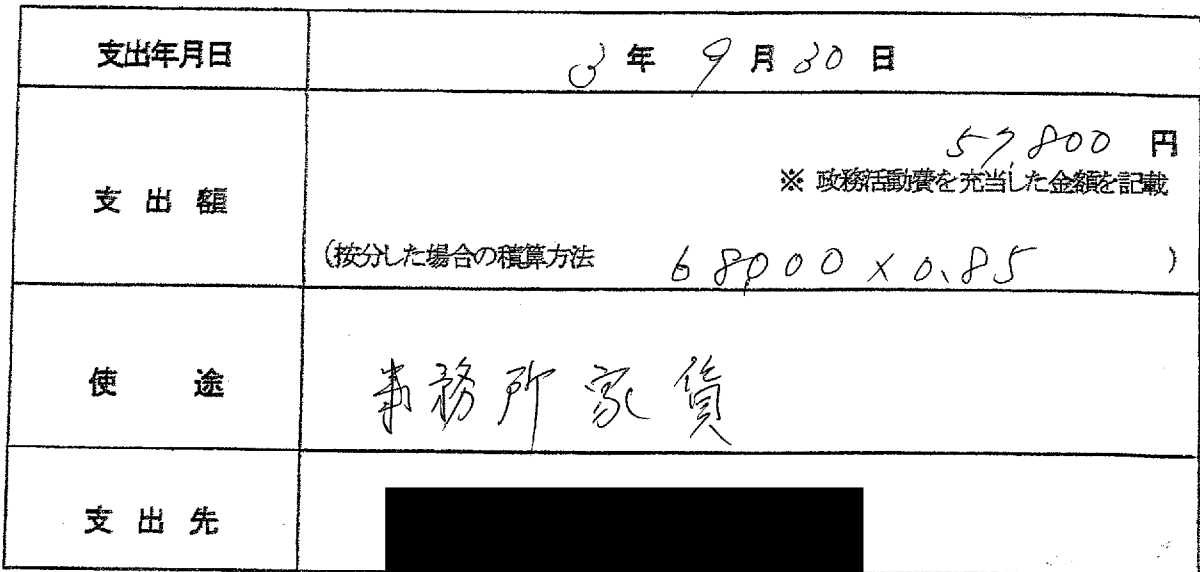 支出年月日 3年 9月30日
57,800 円
※ 政務活動費を充当した金額を記載
支出額
(按分した場合の積算方法 68000×0.85 )
使途 事務所家賃
支出先